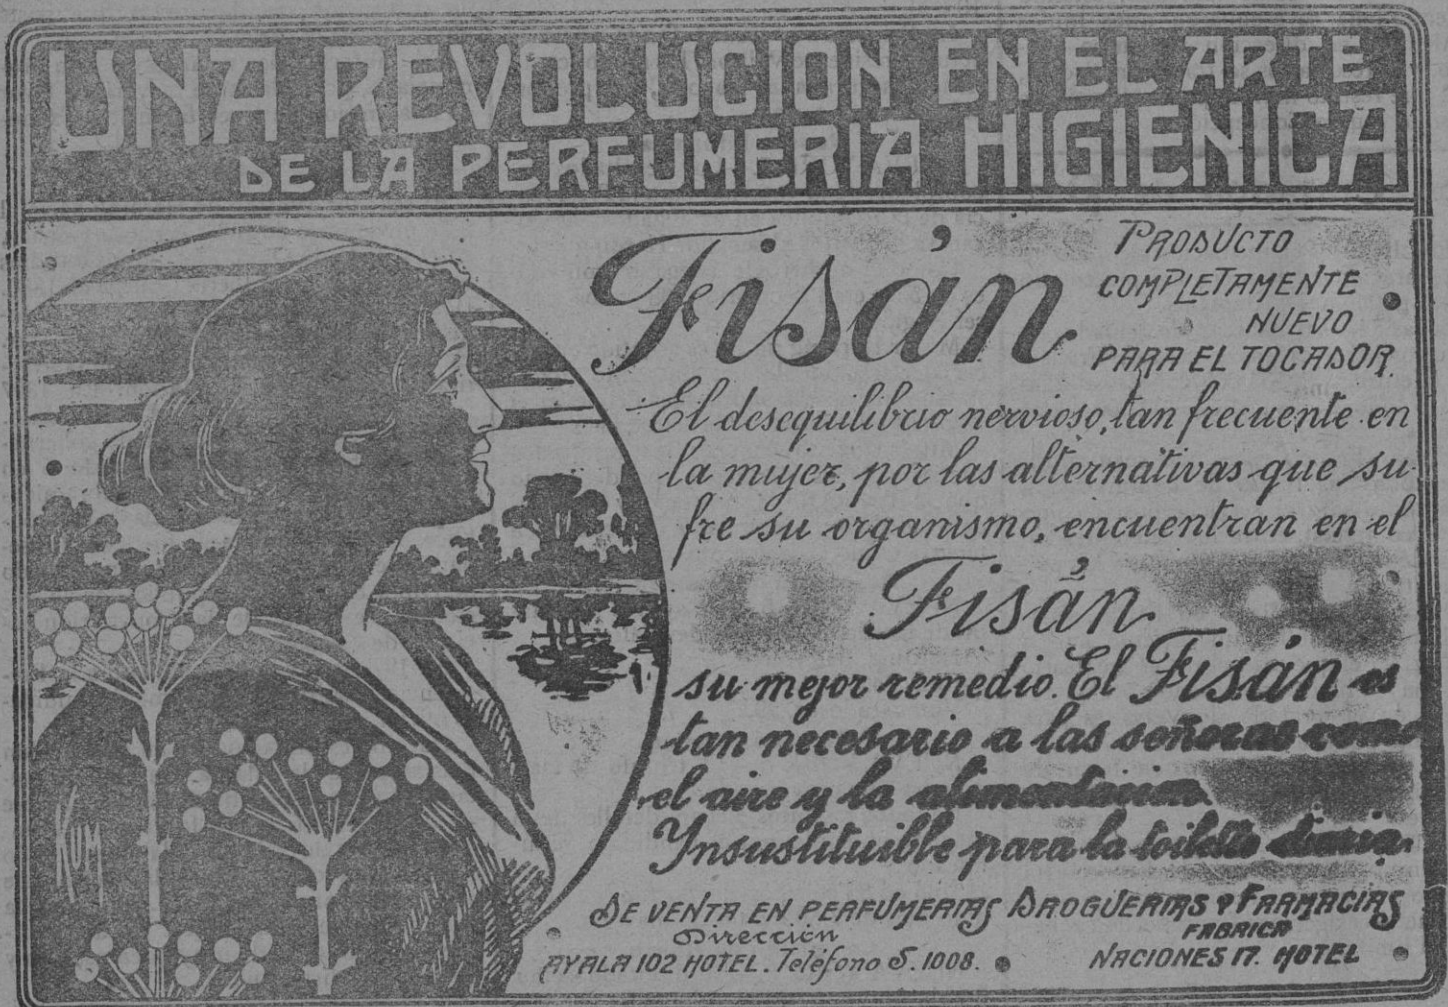 UNA REVOLUCION EN EL ARTE
DE LA PERFUMERIA HIGIENICA
Fisán
PRODUCTO
COMPLETAMENTE
NUEVO
PARA EL TOCADOR.
El desequilibrio nervioso, tan frecuente en
la mujer, por las alternativas que su-
fre su organismo, encuentran en el
Fisán
su mejor remedio. El Fisán es
tan necesario a las señoras como
el aire y la alimentacion.
Insustituible para la toilette diaria.
DE VENTA EN PERFUMERIAS DROGUERIAS Y FARMACIAS
Dirección
AYALA 102 HOTEL. Teléfono S. 1008.
FABRICA
NACIONES 17. HOTEL
KUM